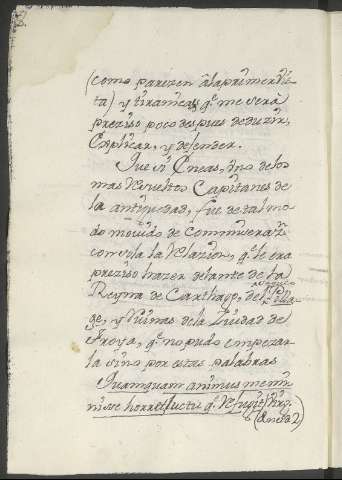 (como parezen â la primer vis
ta) y tiranicas, q.e me será
preziso poco despues deduzir,
Explicar, y defender.
Que si Eneas, vno delos
mas Resueltos Capitanes de
la antiguedad, fue de tal mo
do mouido de Commiserazⁿ
con sola la Relazion, q.e le era
preziso hazer delante de la
Reyna de Carthago, del Pilla-
ge, y Ruinas dela Ciudad de
Troya, q.e no pudo empezar
la sino por estas palabras
Quamquam animus memi-
nisse horret, luctu q.e Refugit (Virg.
Æneid 2)